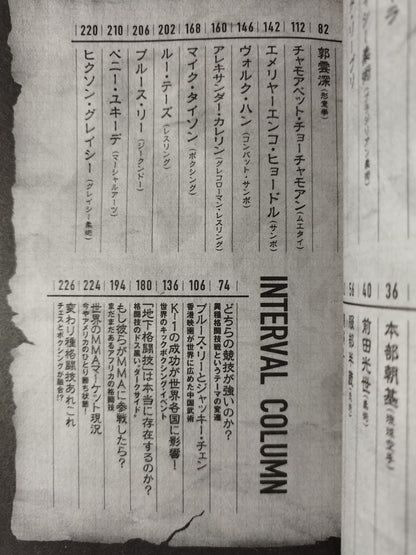 36 本部朝基(琉球空手)
40 前田光世
82 郭雲深(形意拳)
112 チャモアペット・チョーチャモアン(ムエタイ)
142 エメリヤーエンコ・ヒョードル(サンボ)
146 ヴォルク・ハン(コンバット・サンボ)
160 アレキサンダー・カレリン(グレコローマン・レスリング)
168 マイク・タイソン(ボクシング)
202 ルー・テーズ(レスリング)
206 ブルース・リー(ジークンドー)
210 ベニー・ユキーデ(マーシャルアーツ)
220 ヒクソン・グレイシー(グレイシー柔術)
INTERVAL COLUMN
74 どちらの競技が強いのか?
異種格闘技戦というテーマの変遷
106 ブルース・リーとジャッキー・チェン
香港映画が世界に広めた中国武術
136 K-1の成功が世界各国に影響!
世界のキックボクシング・イベント
180 「地下格闘技」は本当に存在するのか?
格闘技のドス黒い“ダークサイド”
194 もし彼らがMMAに参戦したら?
まだまだあるアフリカの格闘技
224 世界のMMAマーケット現況
今やアメリカのひとり勝ち状態!
226 変わり種格闘技あれこれ
チェスとボクシングが融合!?